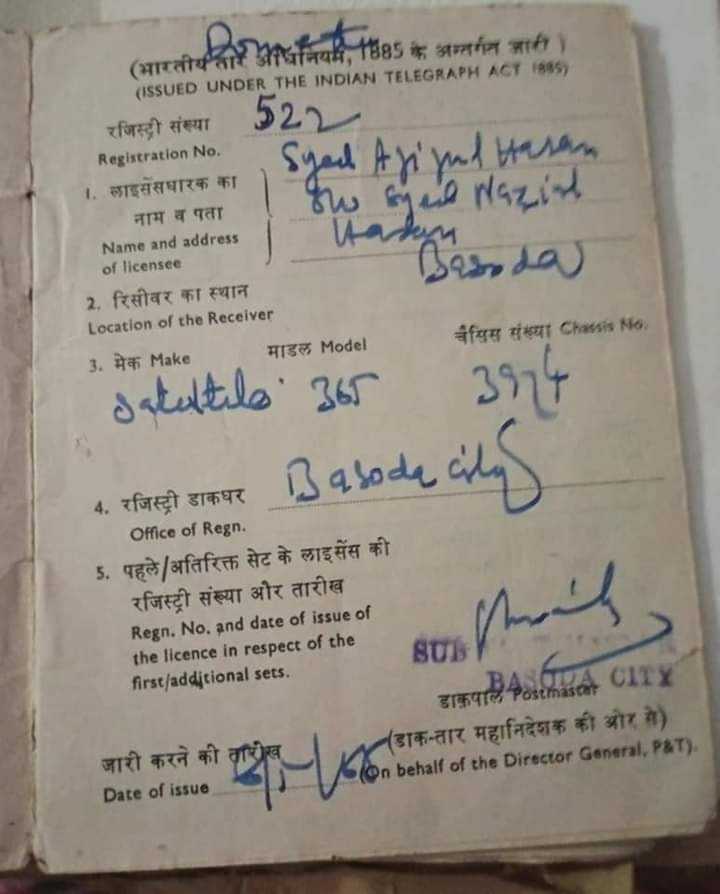 Domestic
(भारतीय तार अधिनियम, 1885 के अन्तर्गत जारी)
(ISSUED UNDER THE INDIAN TELEGRAPH ACT 1885)
रजिस्ट्री संख्या 522
Registration No.
1. लाइसेंसधारक का
नाम व पता
Name and address
of licensee
Syed Hasan
S/o Syed Nazir
Hasan
Basoda
2. रिसीवर का स्थान
Location of the Receiver
3. मेक Make माडल Model चैसिस संख्या Chassis No.
365 3974
4. रजिस्ट्री डाकघर Basoda city
Office of Regn.
5. पहले/अतिरिक्त सेट के लाइसेंस की
रजिस्ट्री संख्या और तारीख
Regn. No. and date of issue of
the licence in respect of the
first/additional sets.
SUB
BASODA CITY
डाकपाल Postmaster
जारी करने की तारीख (डाक-तार महानिदेशक की ओर से)
Date of issue (On behalf of the Director General, P&T).